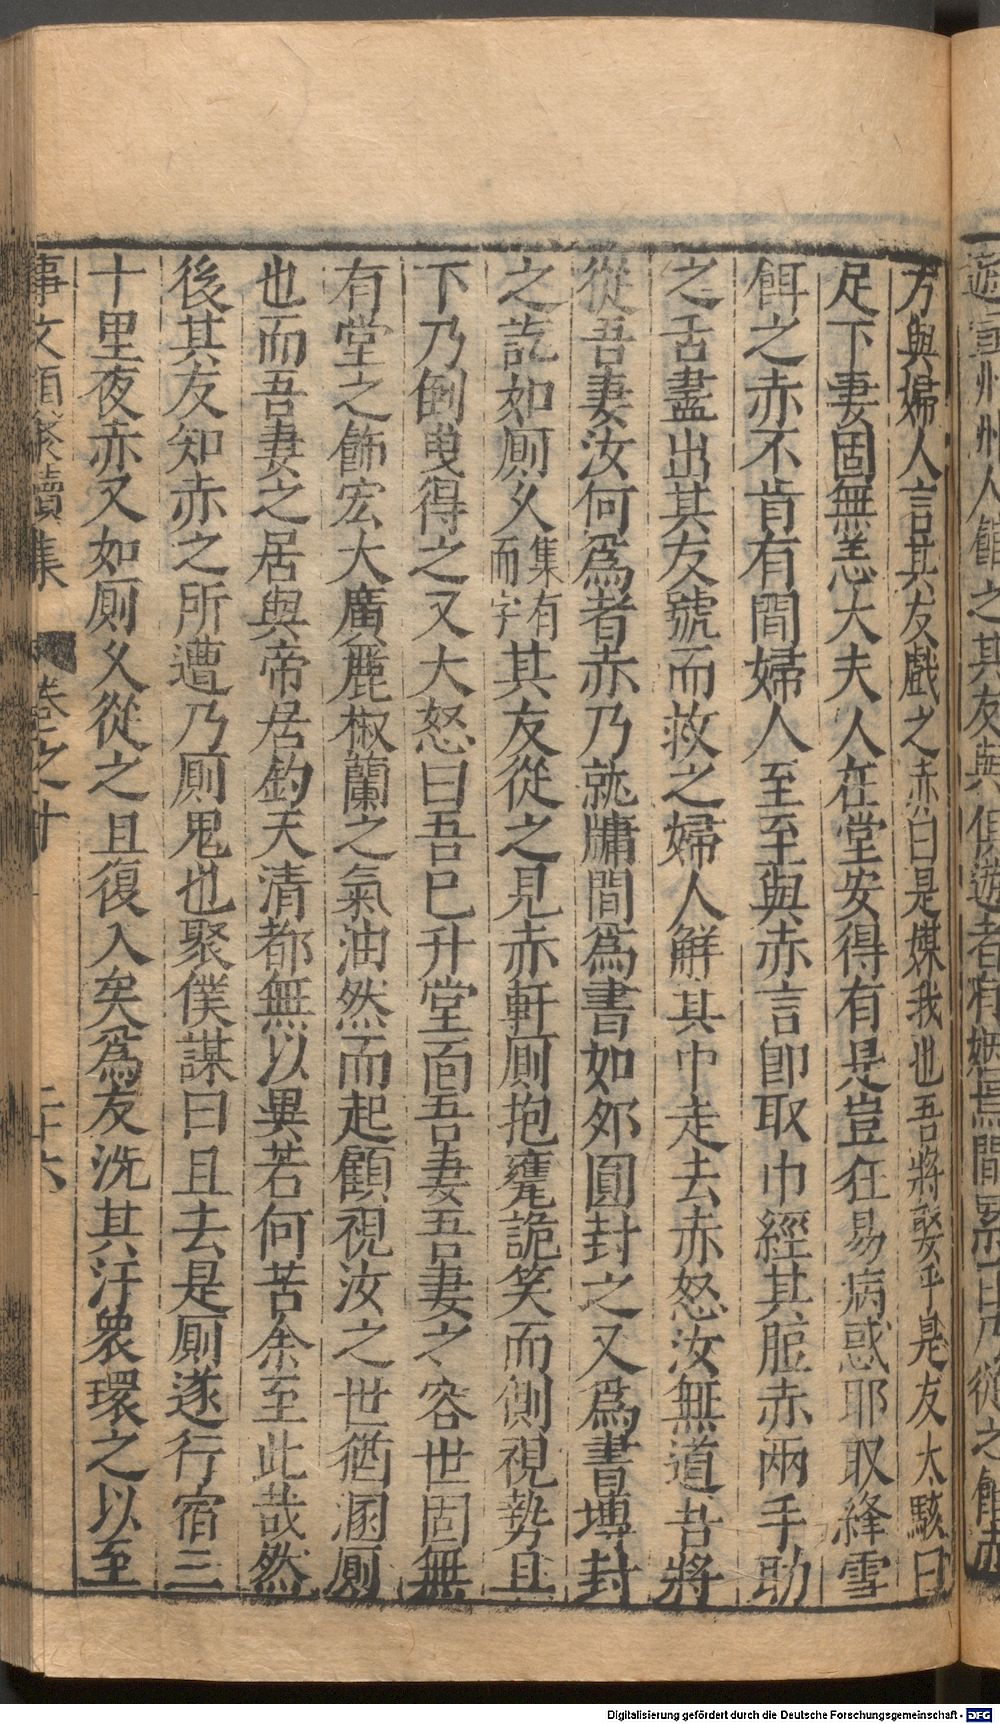 方與婦人言其友戲之赤曰是媒我也吾將娶乎是友大駭曰
足下妻固無恙大夫人在堂安得有是豈狂易病惑耶取絳雪
餌之赤不肯有間婦人至至與赤言即取巾經其脰赤兩手助
之舌盡出其友號而救之婦人解其巾走去赤怒汝無道吾將
從吾妻汝何爲者赤乃就牖間爲書如郊圓封之又爲書塼封
之訖如厠久集有而字其友從之見赤軒厠抱甕詭笑而側視勢且
下乃倒曳得之又大怒曰吾已升堂面吾妻吾妻之容世固無
有堂之飾宏大廣麗椒蘭之氣油然而起顧視汝之世猶溷厠
也而吾妻之居與帝居鈞天清都無以異若何苦余至此哉然
後其友知赤之所遭乃厠鬼也聚僕謀曰且去是厠遂行宿三
十里夜赤又如厠久從之且復入矣爲友洗其汙衆環之以至
事文類聚續集 卷之十 二十六
Digitalisierung gefördert durch die Deutsche Forschungsgemeinschaft - DFG